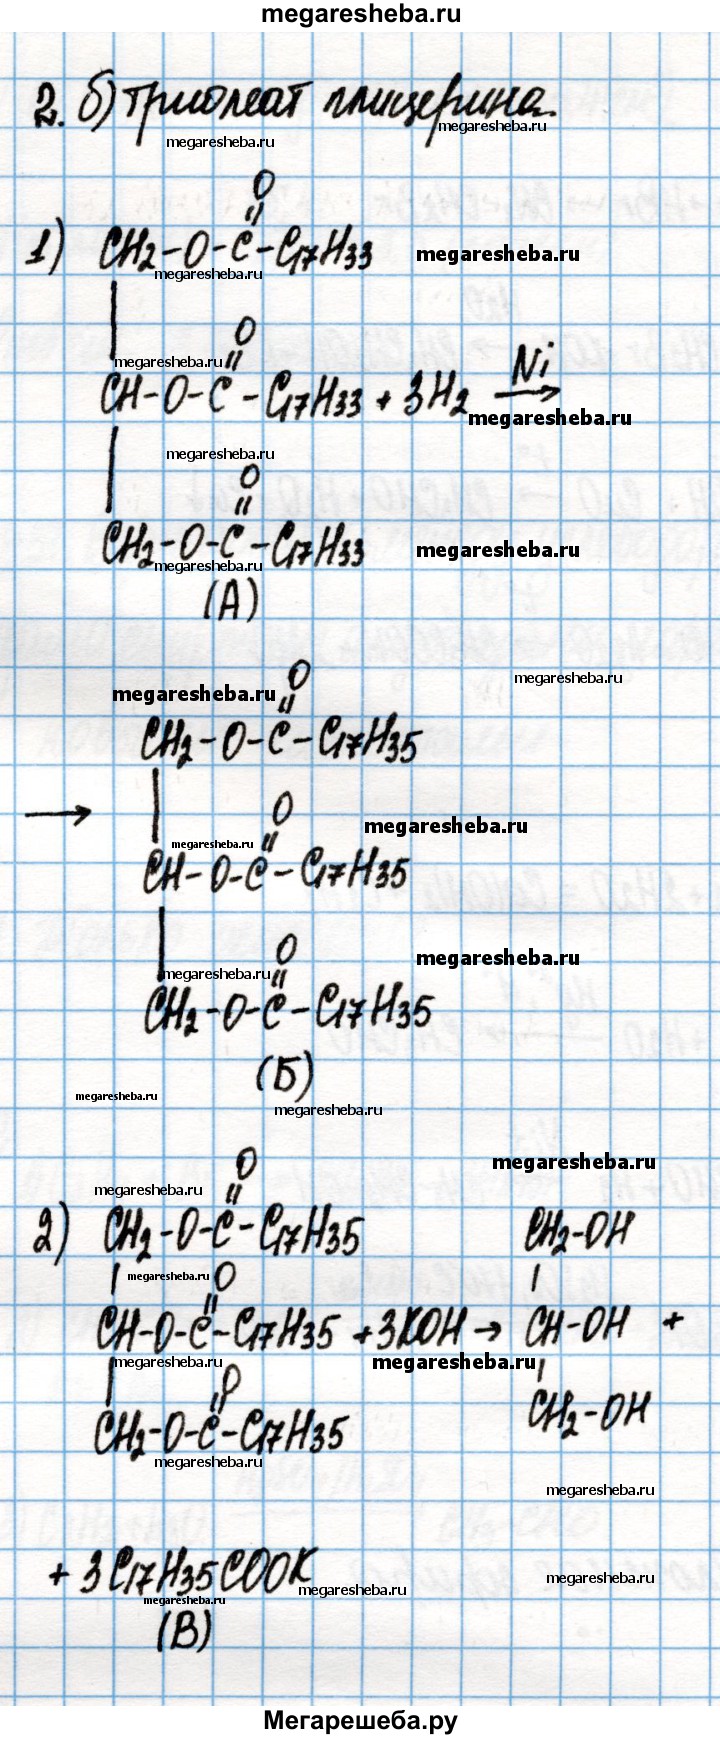 megaresheba.ru
2. б) триолеат глицерина.
megaresheba.ru
megaresheba.ru
O
1) CH2-O-C-C17H33
megaresheba.ru
megaresheba.ru
O
megaresheba.ru
CH-O-C-C17H33 + 3H2 Ni
megaresheba.ru
megaresheba.ru
O
CH2-O-C-C17H33
megaresheba.ru
megaresheba.ru
(А)
O
megaresheba.ru
megaresheba.ru
CH2-O-C-C17H35
→
O
megaresheba.ru
megaresheba.ru
CH-O-C-C17H35
O
megaresheba.ru
megaresheba.ru
CH2-O-C-C17H35
(Б)
megaresheba.ru
megaresheba.ru
O
megaresheba.ru
megaresheba.ru
2) CH2-O-C-C17H35 CH2-OH
megaresheba.ru
O
CH-O-C-C17H35 + 3KOH → CH-OH +
megaresheba.ru
megaresheba.ru
O
CH2-O-C-C17H35 CH2-OH
megaresheba.ru
megaresheba.ru
+ 3C17H35COOK
megaresheba.ru
megaresheba.ru
megaresheba.ru
(В)
Мегарешеба.ру